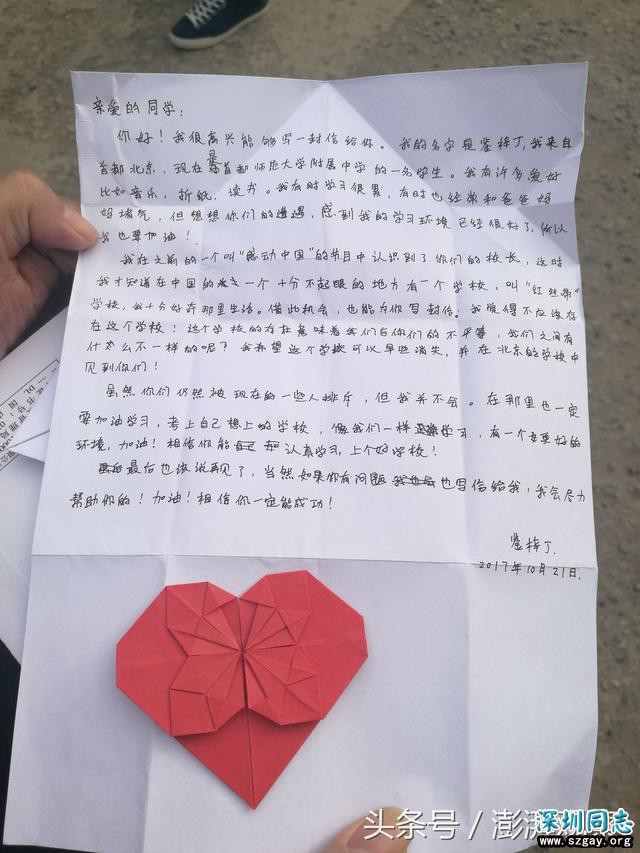 亲爱的同学：
你好！我很高兴能够写一封信给你。我的名字是 梓丁，我来自
首都北京，现在是首都师范大学附属中学的一名学生。我有许多爱好
比如音乐，折纸，读书。我有时学习很累，有时也经常和爸爸妈
妈堵气，但想想你们的遭遇，感到我的学习环境已经很好了，所以
我也要加油！
我在之前的一个叫“感动中国”的节目中认识到了你们的校长，这时
我才知道在中国的 一个十分不起眼的地方有一个学校，叫“红丝带”
学校，我十分好奇那里生活。借此机会，也能为你写封信。我觉得不应该存
在这个学校！这个学校的存在意味着我们与你们的不平等，我们之间有
什么不一样的呢？我希望这个学校可以早些消失，并在北京的学校中
见到你们！
虽然你们仍然被现在的一些人排斥，但我并不会。在那里也一定
要加油学习，考上自己想上的学校，像我们一样 学习，有一个 更好的
环境，加油！相信你能 认真学习，上个好学校！
最后也该说再见了，当然如果你有问题 也写信给我，我会尽力
帮助你的！加油！相信你一定能成功！
梓丁.
2017年10月21日.
头条号／澎湃
深圳同志
www.szgay.org